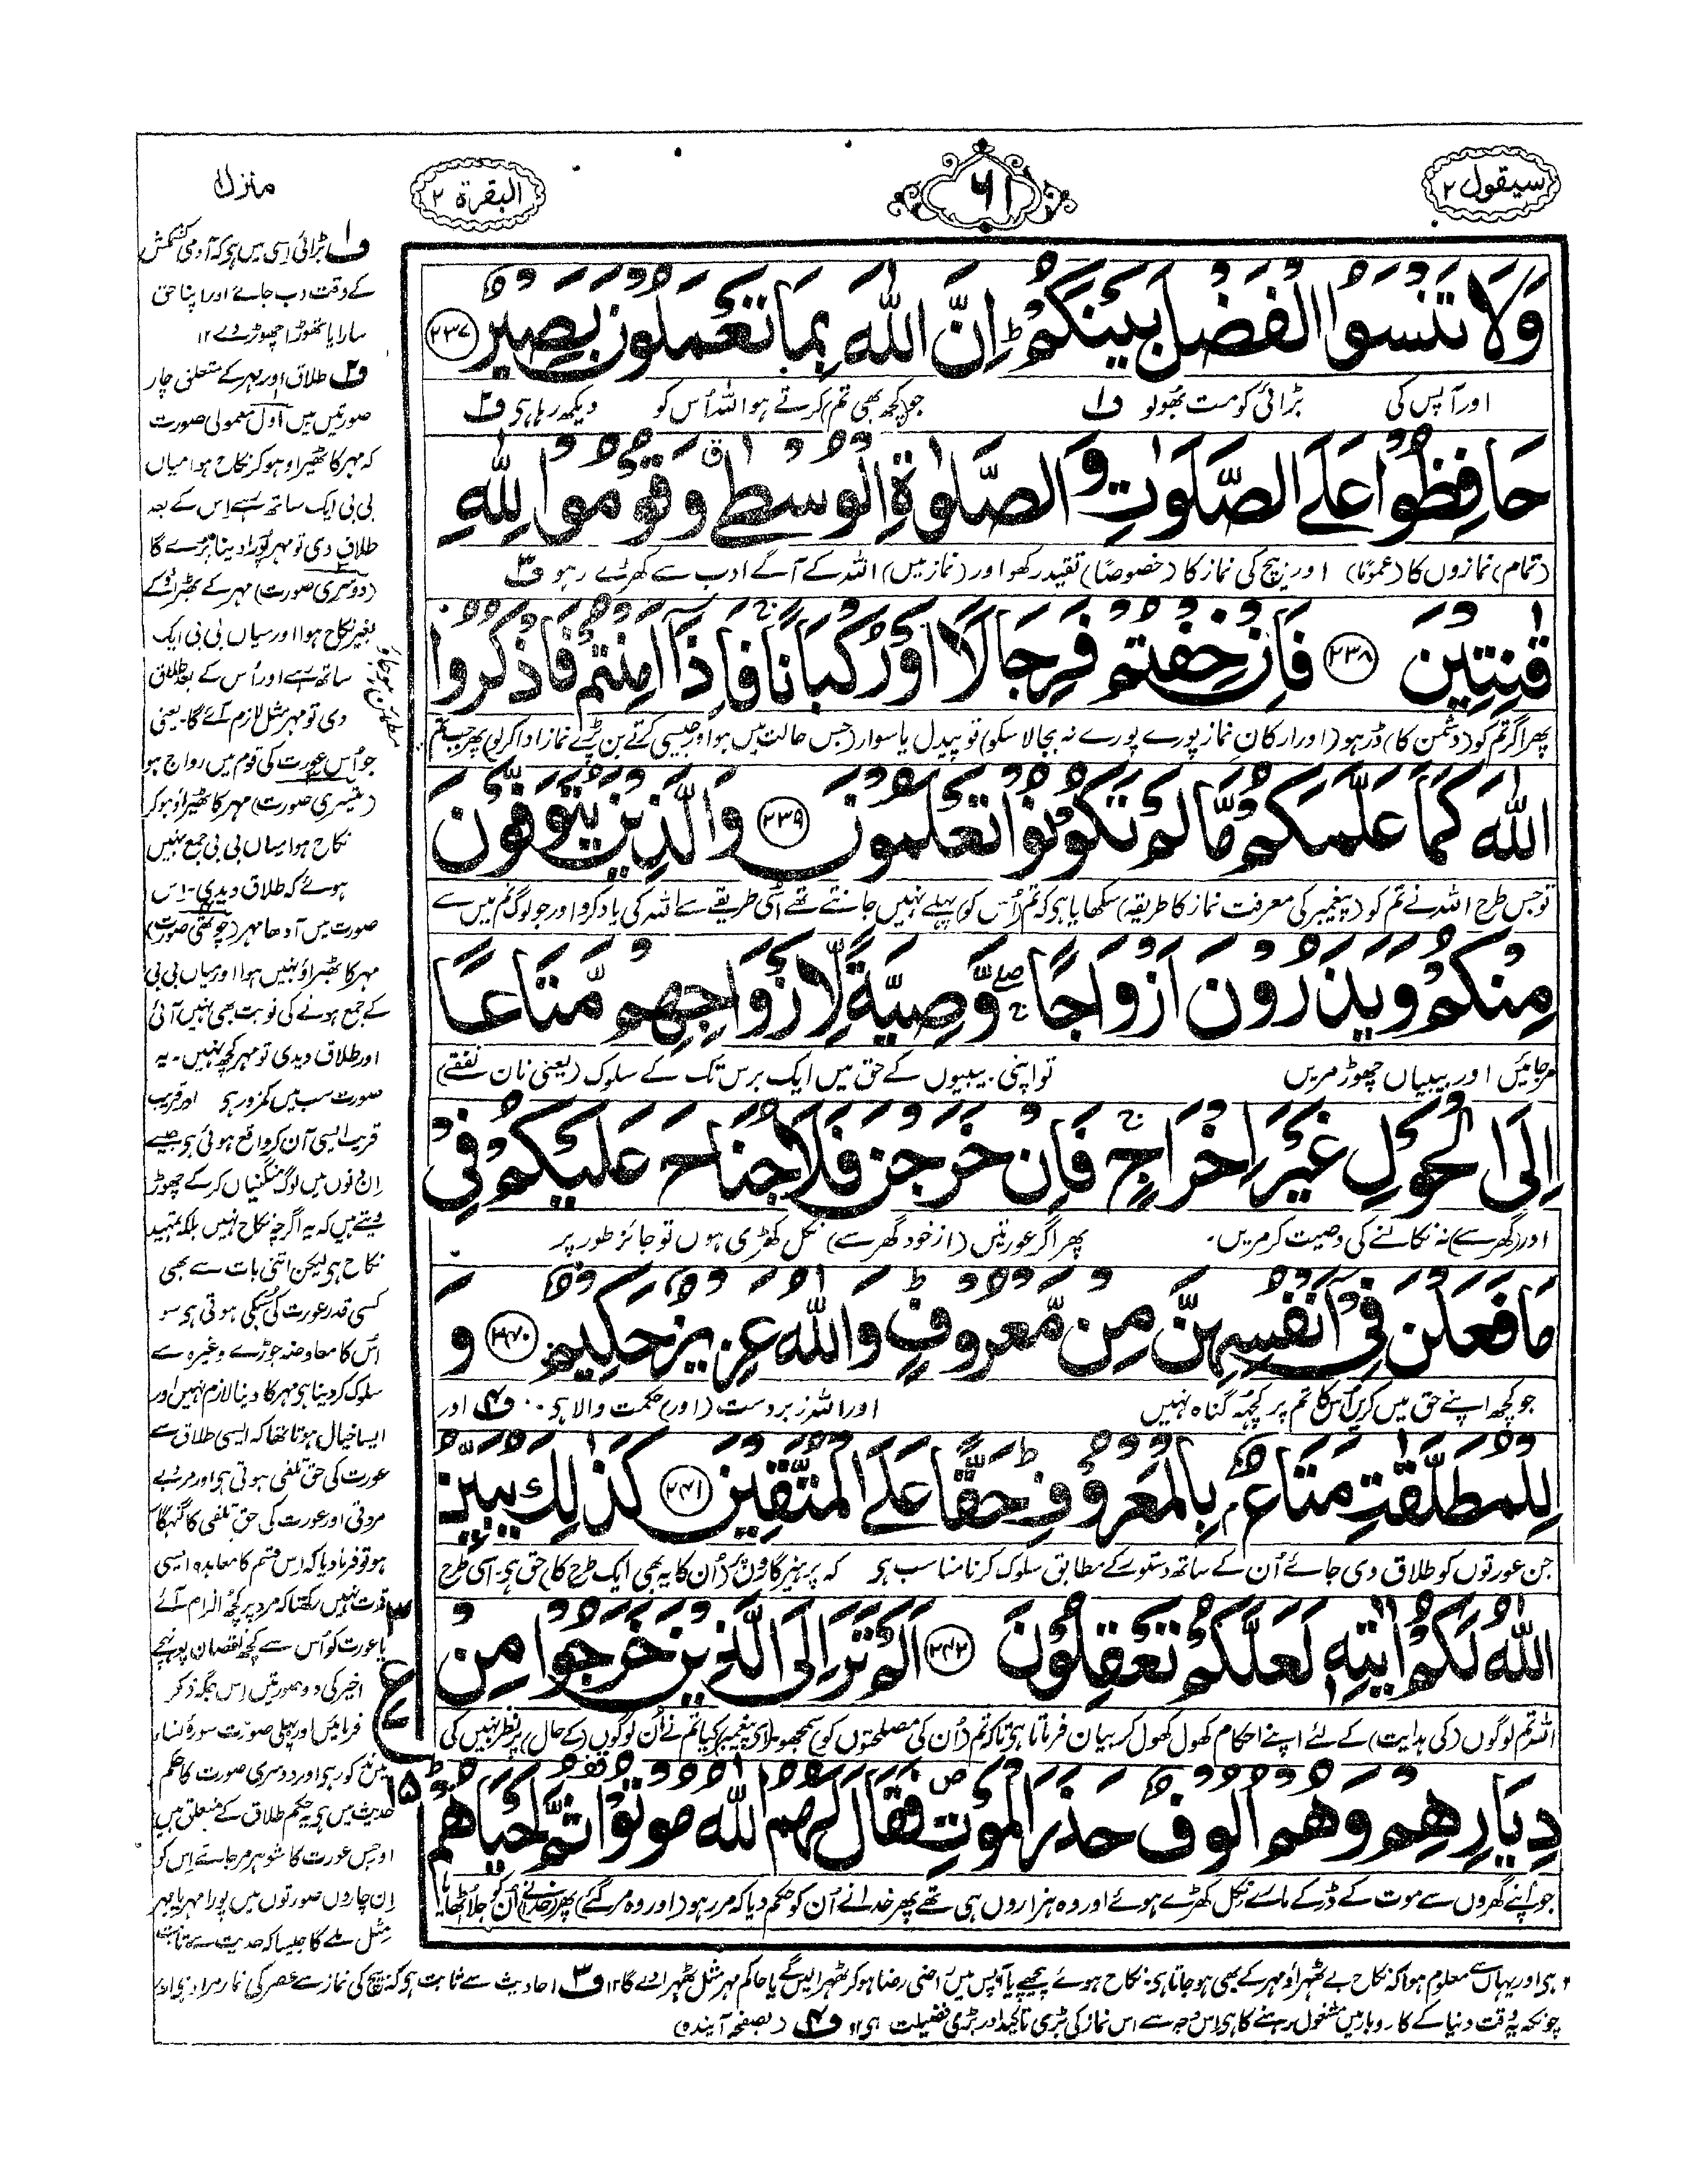 سیقول ۲
۶۱
البقرة ۲
منزل
وَلَا تَنْسَوُا الْفَضْلَ بَيْنَكُمْ ؕ اِنَّ اللّٰهَ بِمَا تَعْمَلُوْنَ بَصِيْرٌ ﴿۲۳۷﴾
اور آپس کی بڑائی کو مت بھولو ف۱ جو کچھ بھی تم کرتے ہو اللہ اُس کو دیکھ رہا ہی ف۲
حَافِظُوْا عَلَى الصَّلَوٰتِ وَالصَّلٰوةِ الْوُسْطٰى ۗ وَقُوْمُوْا لِلّٰهِ
(تمام) نمازوں کا (عموماً) اور بیچ کی نماز کا (خصوصاً) تقید رکھو اور (نماز میں) اللہ کے آگے ادب سے کھڑے رہو ف۳
قٰنِتِيْنَ ﴿۲۳۸﴾ فَاِنْ خِفْتُمْ فَرِجَالًا اَوْ رُكْبَانًا ۚ فَاِذَآ اَمِنْتُمْ فَاذْكُرُوا
پھر اگر تم کو (دشمن کا) ڈر ہو (اور ارکان نماز پورے پورے نہ بجا لا سکو) تو پیدل یا سوار (جس حالت میں ہو اور جیسی کرتے بن پڑے نماز ادا کر لو) پھر جب تم
مطمئن ہو جاؤ
اللّٰهَ كَمَا عَلَّمَكُمْ مَّا لَمْ تَكُوْنُوْا تَعْلَمُوْنَ ﴿۲۳۹﴾ وَالَّذِيْنَ يُتَوَفَّوْنَ
تو جس طرح اللہ نے تم کو (پیغمبر کی معرفت نماز کا طریقہ) سکھایا ہی کہ تم (اُس کو) پہلے نہیں جانتے تھے اُسی طریقے سے اللہ کی یاد کرو اور جو لوگ تم میں سے
مِنْكُمْ وَيَذَرُوْنَ اَزْوَاجًا ۖ ۚ وَّصِيَّةً لِّاَزْوَاجِهِمْ مَّتَاعًا
مر جائیں اور بیبیاں چھوڑ مریں تو اپنی بیبیوں کے حق میں ایک برس تک کے سلوک (یعنی نان نفقے)
اِلَى الْحَوْلِ غَيْرَ اِخْرَاجٍ ۚ فَاِنْ خَرَجْنَ فَلَا جُنَاحَ عَلَيْكُمْ فِيْ
اور (گھر سے) نہ نکالنے کی وصیت کر مریں۔ پھر اگر عورتیں (از خود گھر سے) نکل کھڑی ہوں تو جائز طور پر
مَا فَعَلْنَ فِيْٓ اَنْفُسِهِنَّ مِنْ مَّعْرُوْفٍ ؕ وَاللّٰهُ عَزِيْزٌ حَكِيْمٌ ﴿۲۴۰﴾ وَ
جو کچھ اپنے حق میں کریں اُس کا تم پر کچھ گناہ نہیں اور اللہ زبردست (اور) حکمت والا ہی ف۴ اور
لِلْمُطَلَّقٰتِ مَتَاعٌۢ بِالْمَعْرُوْفِ ؕ حَقًّا عَلَى الْمُتَّقِيْنَ ﴿۲۴۱﴾ كَذٰلِكَ يُبَيِّنُ
جن عورتوں کو طلاق دی جائے اُن کے ساتھ دستور کے مطابق سلوک کرنا مناسب ہی کہ پرہیزگاروں پر (اُن کا یہ بھی ایک طرح کا) حق ہی۔ اسی طرح
اللّٰهُ لَكُمْ اٰيٰتِهٖ لَعَلَّكُمْ تَعْقِلُوْنَ ﴿۲۴۲﴾ اَلَمْ تَرَ اِلَى الَّذِيْنَ خَرَجُوْا مِنْ
اللہ تم لوگوں (کی ہدایت) کے لئے اپنے احکام کھول کھول کر بیان فرماتا ہی تاکہ تم (اُن کی مصلحتوں کو) سمجھو (اے پیغمبر) کیا تم نے اُن لوگوں (کے حال) پر نظر نہیں کی
دِيَارِهِمْ وَهُمْ اُلُوْفٌ حَذَرَ الْمَوْتِ ۪ فَقَالَ لَهُمُ اللّٰهُ مُوْتُوْا ۟ ثُمَّ اَحْيَاهُمْ ؕ
جو اپنے گھروں سے موت کے ڈر کے مارے نکل کھڑے ہوئے اور وہ ہزاروں ہی تھے پھر خدا نے اُن کو حکم دیا کہ مر رہو (اور وہ مر گئے) پھر (خدا نے) اُن کو جلا اٹھایا
ف۱ بڑائی اسی میں ہی کہ آدمی کشمکش
کے وقت دب جائے اور اپنا حق
سارا یا تھوڑا چھوڑ دے ۱۲
ف۲ طلاق اور مہر کے متعلق چار
صورتیں ہیں اول معمولی صورت
کہ مہر کا ٹھیراؤ ہو کر نکاح ہوا میاں
بی بی ایک ساتھ رہے اِس کے بعد
طلاق دی تو مہر پورا دینا پڑے گا
(دوسری صورت) مہر کے ٹھیرائے
بغیر نکاح ہوا اور میاں بی بی ایک
ساتھ رہے اور اُس کے بعد طلاق
دی تو مہر مثل لازم آئے گا۔ یعنی
جو اُس عورت کی قوم میں رواج ہو
(تیسری صورت) مہر کا ٹھیراؤ ہو کر
نکاح ہوا میاں بی بی جمع نہیں
ہوئے کہ طلاق دیدی۔ اِس
صورت میں آدھا مہر (چوتھی صورت)
مہر کا ٹھیراؤ نہیں ہوا اور میاں بی بی
کے جمع ہونے کی نوبت بھی نہیں آئی
اور طلاق دیدی تو مہر کچھ نہیں۔ یہ
صورت سب میں کمزور ہی اور قریب
قریب ایسی آن کر واقع ہوئی ہی جیسے
اِن دنوں میں لوگ منگنیاں کر کے چھوڑ
دیتے ہیں کہ یہ اگرچہ نکاح نہیں بلکہ تمہید
نکاح ہی لیکن اتنی بات سے بھی
کسی قدر عورت کی سُبکی ہوتی ہی سو
اس کا معاوضہ جوڑے وغیرہ سے
سلوک کر دینا ہی مہر کا دینا لازم نہیں اور
ایسا خیال ہوتا تھا کہ ایسی طلاق سے
عورت کی حق تلفی ہوتی ہی اور مرد بے
مروتی اور عورت کی حق تلفی کا گنہگار
ہو تو فرما دیا کہ اِس قسم کا معاہدہ ایسی
وقعت نہیں رکھتا کہ مرد پر کچھ الزام آئے
یا عورت کو اُس سے کچھ نقصان پہنچے
اخیر کی دو صورتیں اِس جگہ ذکر
فرمائیں اور پہلی صورت سورۂ نساء
میں مذکور ہی اور دوسری صورت کا حکم
حدیث میں ہی یہ حکم طلاق کے متعلق ہیں
اور جس عورت کا شوہر مر جائے اِس کو
اِن چاروں صورتوں میں پورا مہر یا مہر
مثل ملے گا جیسا کہ حدیث سے ثابت
۳
ع
۱۵
ہی اور یہاں سے معلوم ہوا کہ نکاح بے ٹھہراؤ مہر کے بھی ہو جاتا ہی۔ نکاح ہوئے پیچھے یا آپس میں راضی رضا ہو کر ٹھہرا لیں گے یا حاکم مہر مثل ٹھہرا دے گا ۱۲ ف۳ احادیث سے ثابت ہی کہ بیچ کی نماز سے عصر کی نماز مراد ہی اور
چونکہ یہ وقت دنیا کے کاروبار میں مشغول رہنے کا ہی اِس وجہ سے اس نماز کی بڑی تاکید اور بڑی فضیلت ہی ۱۲ ف۴ (بصفحہ آیندہ)